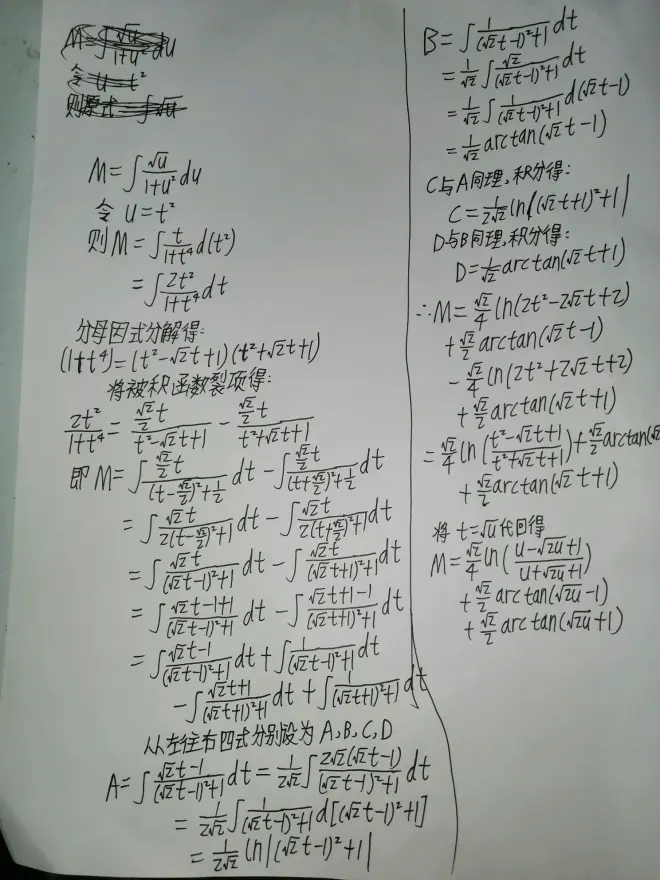 M=∫√u/(1+u²)du
令 u=t²
则原式=∫√u
M=∫√u/(1+u²)du
令 u=t²
则M=∫t/(1+t⁴)d(t²)
=∫2t²/(1+t⁴)dt
分母因式分解得:
(1+t⁴)=(t²-√2t+1)(t²+√2t+1)
将被积函数裂项得:
2t²/(1+t⁴)=(√2/2 t)/(t²-√2t+1)-(√2/2 t)/(t²+√2t+1)
即M=∫(√2/2 t)/((t-√2/2)²+1/2)dt-∫(√2/2 t)/((t+√2/2)²+1/2)dt
=∫√2t/(2(t-√2/2)²+1)dt-∫√2t/(2(t+√2/2)²+1)dt
=∫√2t/((√2t-1)²+1)dt-∫√2t/((√2t+1)²+1)dt
=∫(√2t-1+1)/((√2t-1)²+1)dt-∫(√2t+1-1)/((√2t+1)²+1)dt
=∫(√2t-1)/((√2t-1)²+1)dt+∫1/((√2t-1)²+1)dt
-∫(√2t+1)/((√2t+1)²+1)dt+∫1/((√2t+1)²+1)dt
从左往右四式分别设为A,B,C,D
A=∫(√2t-1)/((√2t-1)²+1)dt=1/(2√2)∫2√2(√2t-1)/((√2t-1)²+1)dt
=1/(2√2)∫1/((√2t-1)²+1)d[(√2t-1)²+1]
=1/(2√2)ln|(√2t-1)²+1|
B=∫1/((√2t-1)²+1)dt
=1/√2∫√2/((√2t-1)²+1)dt
=1/√2∫1/((√2t-1)²+1)d(√2t-1)
=1/√2arctan(√2t-1)
C与A同理,积分得:
C=1/(2√2)ln|(√2t+1)²+1|
D与B同理,积分得:
D=1/√2arctan(√2t+1)
∴M=√2/4ln(2t²-2√2t+2)
+√2/2arctan(√2t-1)
-√2/4ln(2t²+2√2t+2)
+√2/2arctan(√2t+1)
=√2/4ln((t²-√2t+1)/(t²+√2t+1))+√2/2arctan(√2
+√2/2arctan(√2t+1)
将t=√u代回得
M=√2/4ln((u-√2u+1)/(u+√2u+1))
+√2/2arctan(√2u-1)
+√2/2arctan(√2u+1)